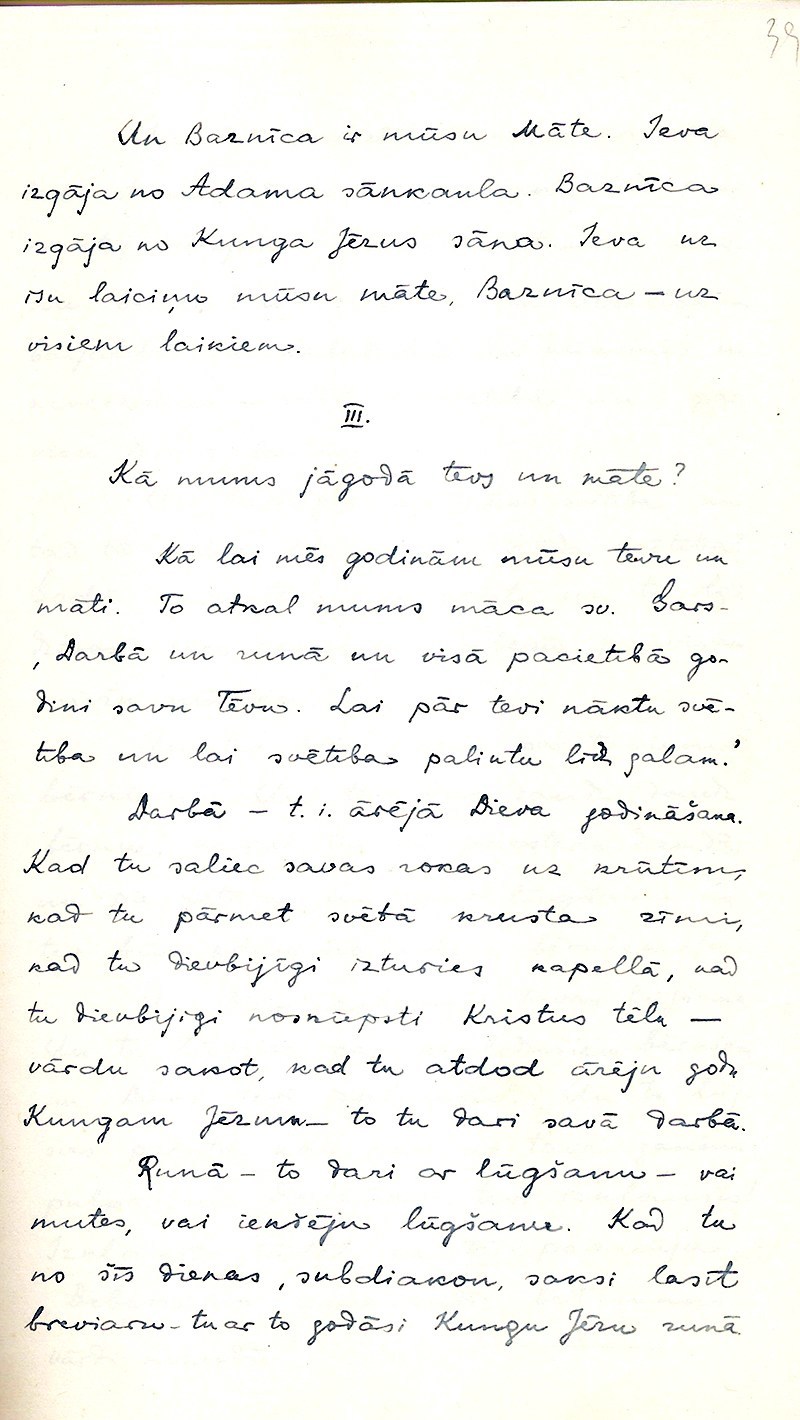 39
Un Baznīca ir mūsu Māte. Ieva
izgāja no Adama sānkaula. Baznīca
izgāja no Kunga Jēzus sāna. Ieva uz
īsu laiciņu mūsu māte, Baznīca — uz
visiem laikiem.
III.
Kā mums jāgodā tēvs un māte?
Kā lai mēs godinām mūsu tēvu un
māti. To atkal mums māca sv. Gars-
, Darbā un runā un visā pacietībā go-
dini savu Tēvu. Lai pār tevi nāktu svē-
tība un lai svētība paliktu līdz galam.'
Darbā — t. i. ārējā Dieva godināšana.
Kad tu saliec savas rokas uz krūtīm,
kad tu pārmet svētā krusta zīmi,
kad tu dievbijīgi izturies kapellā, kad
tu dievbijigi noskūpsti Kristus tēlu —
vārdu sakot, kad tu atdod ārēju godu
Kungam Jēzum — to tu dari savā darbā.
Runā — to dari ar lūgšanu — vai
mutes, vai iekšēju lūgšanu. Kad tu
no šīs dienas, subdiakon, saksi lasīt
breviaru — tu ar to godāsi Kungu Jēzu runā